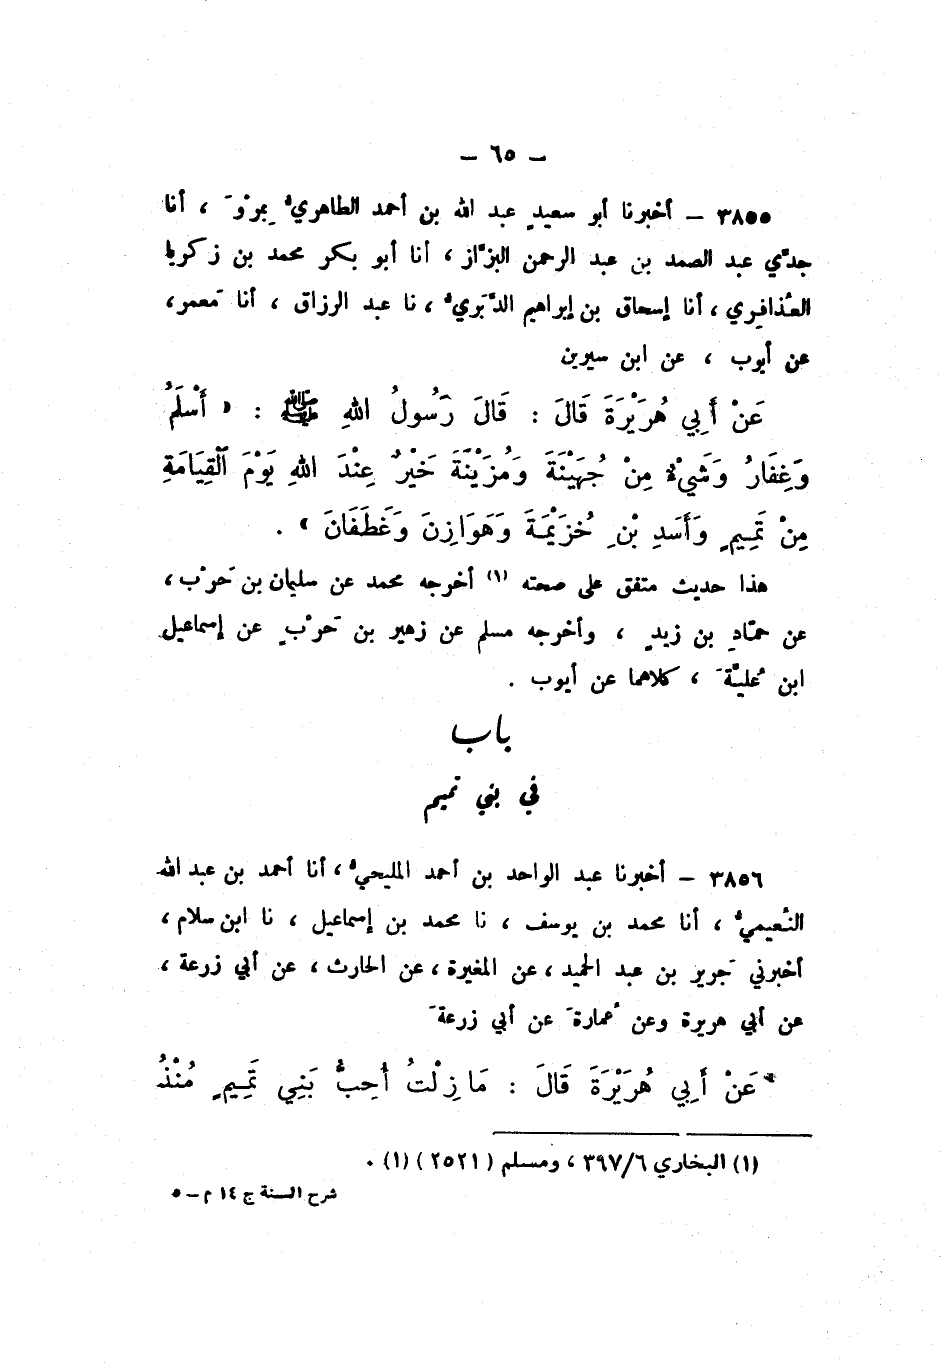 – ٦٥ –
٣٨٥٥ – أخبرنا أبو سعيدٍ عبد الله بن أحمد الطاهريُّ بِمرْوَ ، أنا
جدّي عبد الصمد بن عبد الرحمن البزَّاز ، أنا أبو بكر محمد بن زكريا
العُذافِري ، أنا إسحاق بن إبراهيم الدَّبَريُّ ، نا عبد الرزاق ، أنا مَعمر ،
عن أيوب ، عن ابن سيرين
عَنْ أَبِي هُرَيْرَةَ قَالَ : قَالَ رَسُولُ اللهِ ﷺ : « أَسْلَمُ
وَغِفَارُ وَشَيْءٌ مِنْ جُهَيْنَةَ وَمُزَيْنَةَ خَيْرٌ عِنْدَ اللهِ يَوْمَ الْقِيَامَةِ
مِنْ تَمِيمٍ وَأَسَدِ بْنِ خُزَيْمَةَ وَهَوَازِنَ وَغَطَفَانَ » .
هذا حديث متفق على صحته (١) أخرجه محمد عن سليمان بن حَرْب ،
عن حمَّادِ بن زيدٍ ، وأخرجه مسلم عن زهير بن حَرْبٍ عن إسماعيل
ابن عُليَّةَ ، كلاهما عن أيوب .
باب
في بني تميم
٣٨٥٦ – أخبرنا عبد الواحد بن أحمد المليحيُّ ، أنا أحمد بن عبد الله
النُّعيميُّ ، أنا محمد بن يوسف ، نا محمد بن إسماعيل ، نا ابن سلام ،
أخبرني جَرير بن عبد الحميد ، عن المغيرة ، عن الحارث ، عن أبي زرعة ،
عن أبي هريرة وعن عُمارةَ عن أبي زرعةَ
عَنْ أَبِي هُرَيْرَةَ قَالَ : مَا زِلْتُ أُحِبُّ بَنِي تَمِيمٍ مُنْذُ
(١) البخاري ٣٩٧/٦ ، ومسلم ( ٢٥٢١ ) (١) .
شرح السنة ج ١٤ م – ٥